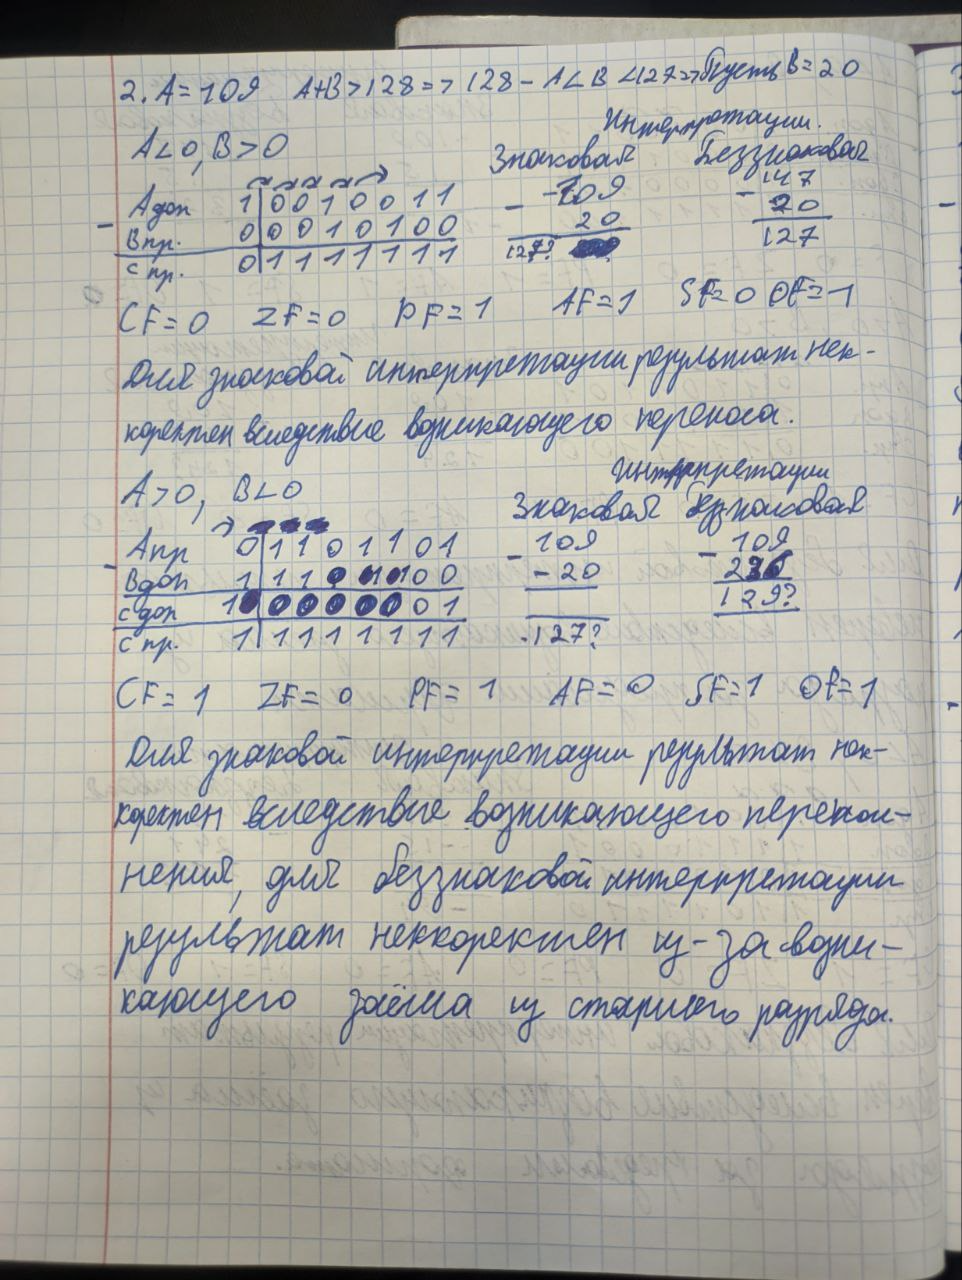 2. A=109 A+B>128=> 128-A<B<127=>Пусть B=20
Интерпретации.
A<0, B>0 Знаковая Беззнаковая
Aдоп 1|0010011 - -109 - 147
- Bпр. 0|0010100 20 20
C пр. 0|1111111 127? 127
CF=0 ZF=0 PF=1 AF=1 SF=0 OF=1
Для знаковой интерпретации результат нек-
коректен вследствие возникающего переноса.
Интерпретации
A>0, B<0 Знаковая Беззнаковая
Aпр 0|1101101 - 109 - 109
- Bдоп 1|1101100 -20 236
C доп 1|0000001 129?
C пр. 1|1111111 -127?
CF=1 ZF=0 PF=1 AF=0 SF=1 OF=1
Для знаковой интерпретации результат нек-
коректен вследствие возникающего перепол-
нения, для беззнаковой интерпретации
результат неккоректен из-за возни-
кающего заёма из старшего разряда.